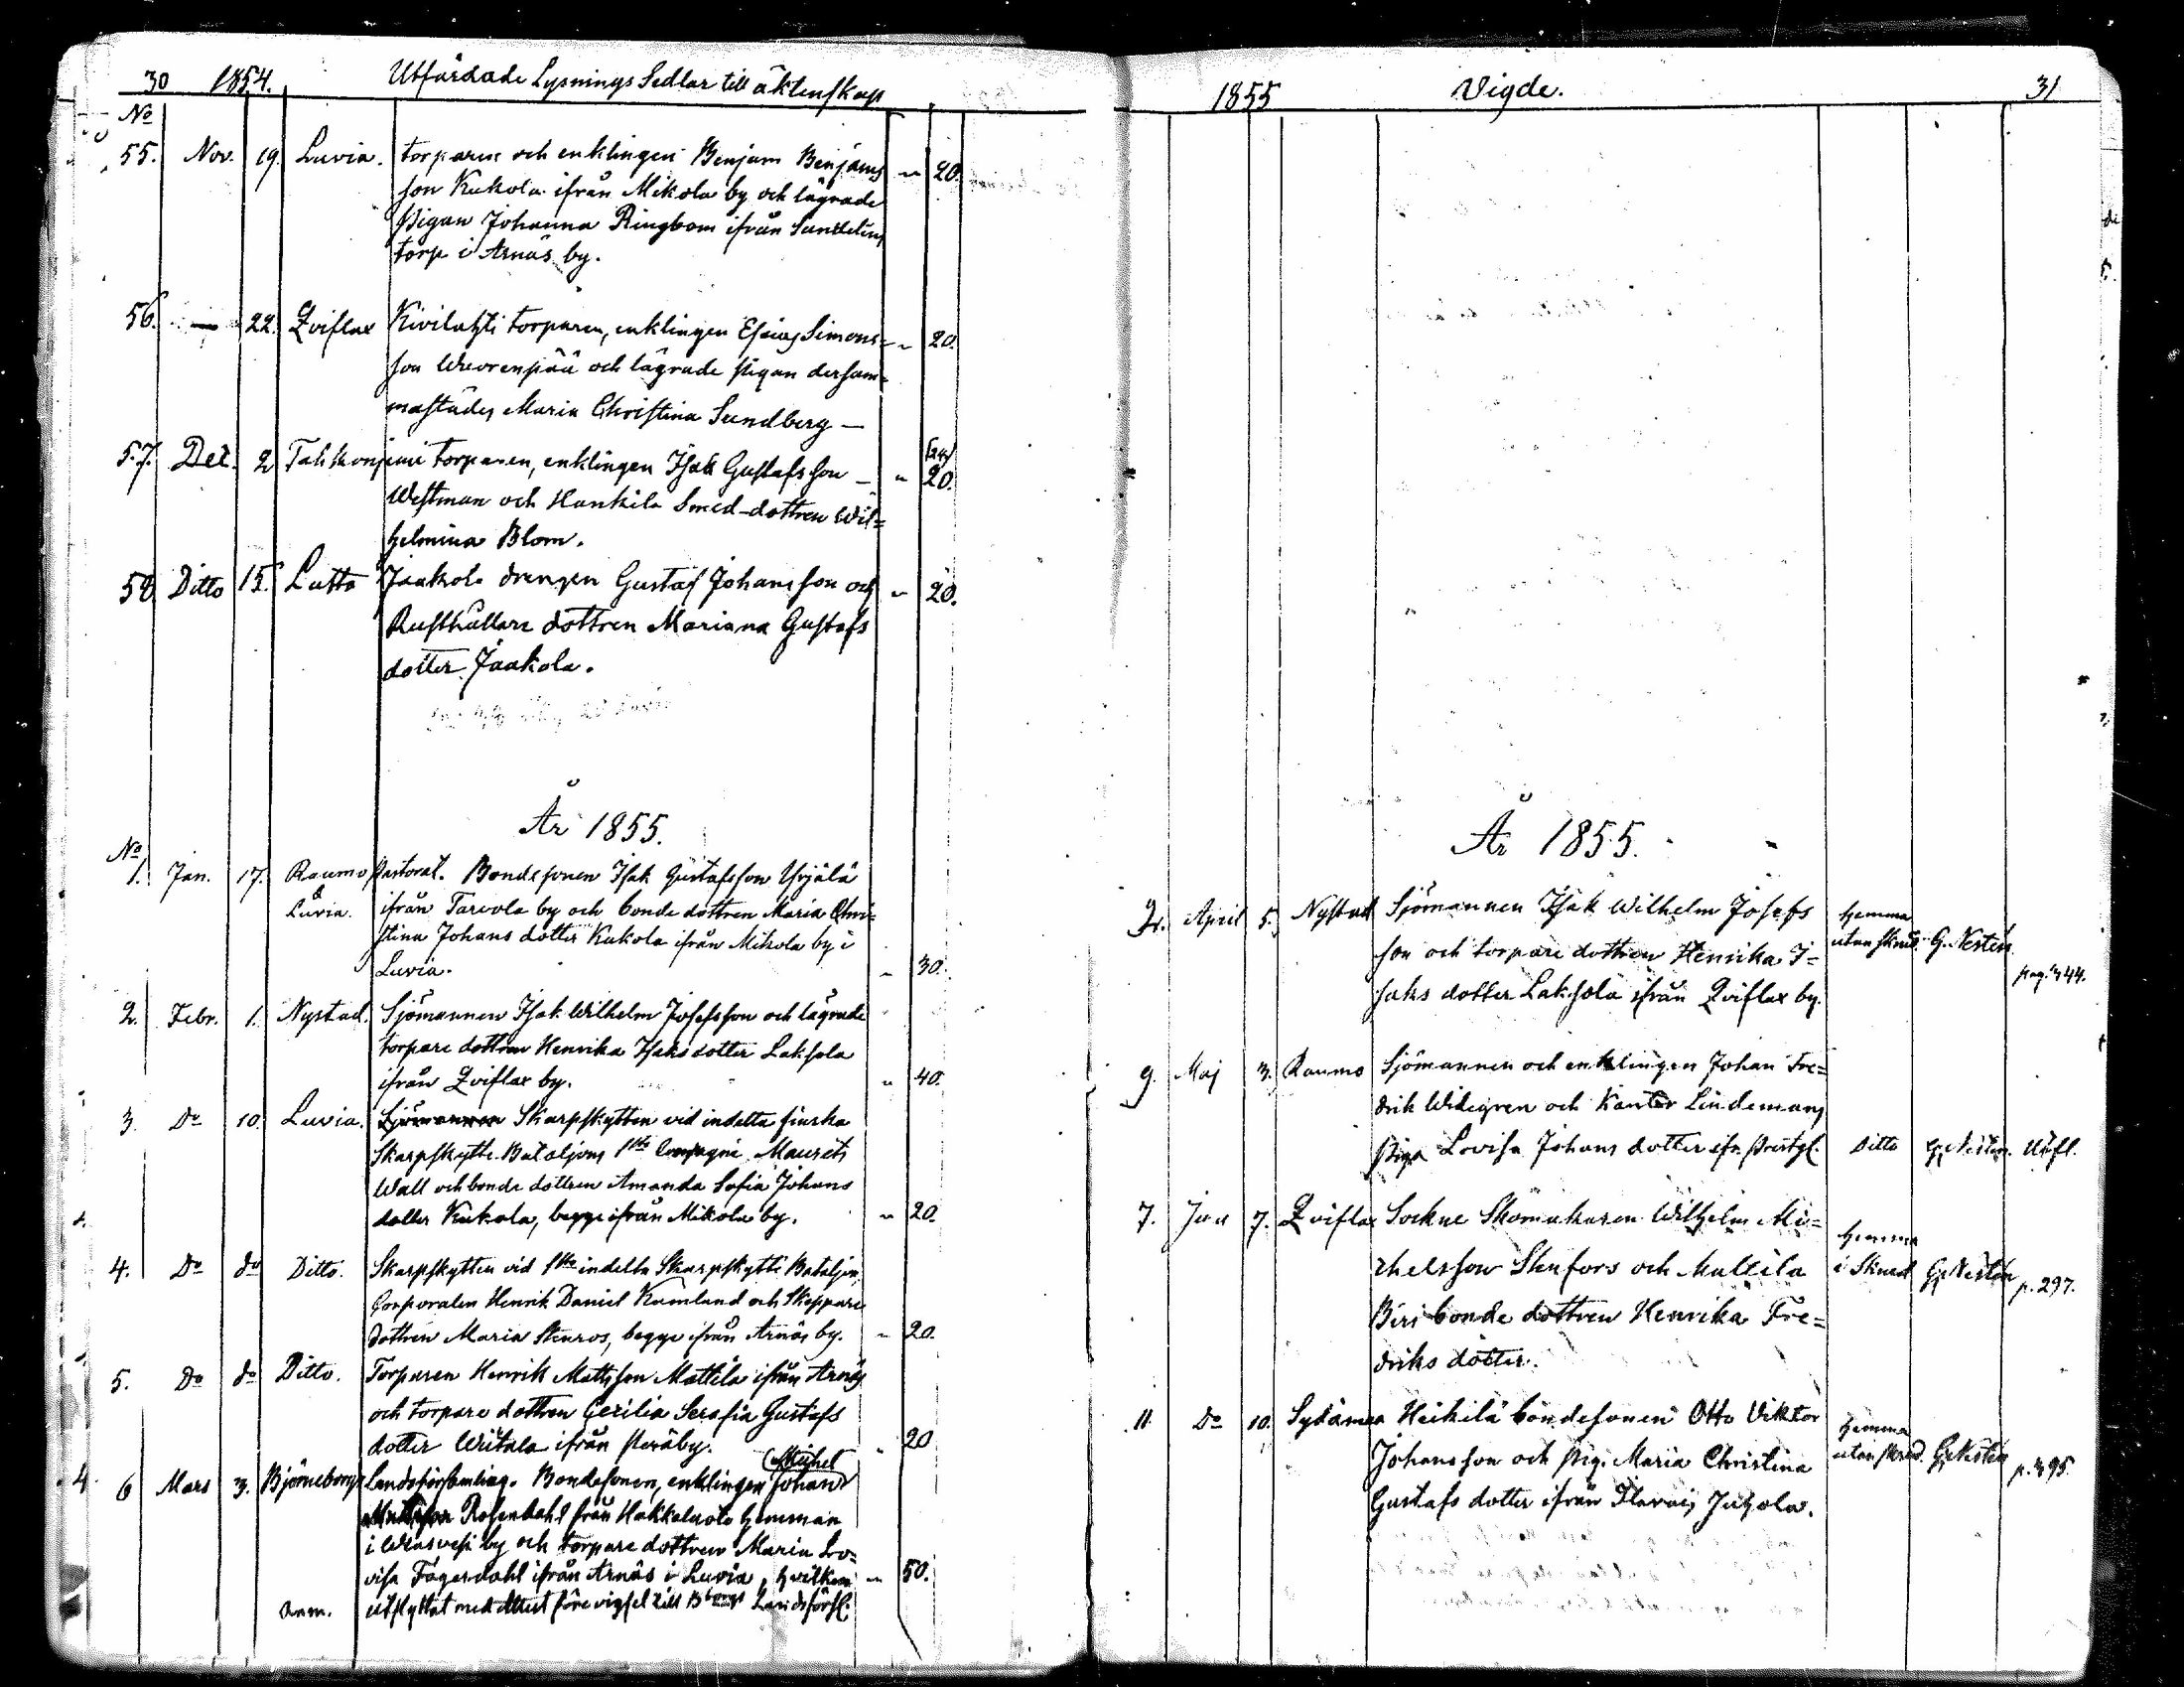 30 1854. Utfärdade Lysnings Sedlar till äktenskap
No
55. Nov. 19. Luvia. torparen och enklingen Benjam Benjams " 20.
son Kukola ifrån Mikola by och lägrade
pigan Johanna Ringbom ifrån Sundelins
torp i Arnäs by.
56. — 22. Qviflax Kivilahti torparen, enklingen Esaias Simons= " 20.
son Wuorenpää och lägrade pigan dersam=
mastädes Maria Christina Sundberg —
57. Dec. 2 Tahkonjemi torparen, enklingen Isak Gustafsson — " 20.
Westman och Hankila Smed-dottren Wil=
helmina Blom.
58 Ditto 15. Lutta Jaakola drengen Gustaf Johansson och " 20.
Rusthållare dottren Mariana Gustafs
dotter Jaakola.
År 1855.
No
1. Jan. 17. Raumo Pastorat. Bondesonen Isak Gustafsson Yrjälä
& Luvia. ifrån Tarvola by och bonde dottren Maria Chri=
stina Johans dotter Kukola ifrån Mikola by i
Luvia. " 30.
2. Febr. 1. Nystad. Sjömannen Isak Wilhelm Josefsson och lägrade
torpare dottren Henrika Isaks dotter Laksola
ifrån Qviflax by. " 40.
3. Do 10. Luvia. Sjömannen Skarpskytten vid indelta finska
Skarpskytte Bataljons 1sta Compagnie Maurits
Wall och bonde dottren Amanda Sofia Johans
dotter Kukola, begge ifrån Mikola by. " 20.
4. Do do Ditto. Skarpskytten vid 1sta indelta Skarpskytte Bataljon,
Corporalen Henrik Daniel Kumlund och Skeppare
dottren Maria Stenros, begge ifrån Arnäs by. " 20.
5. Do do Ditto. Torparen Henrik Mattsson Mattila ifrån Arnäs
och torpare dottren Cecilia Serafia Gustafs
dotter Writala ifrån Peräby. " 20
6 Mars 3. Björneborgs Landsförsamling. Bondesonen, enklingen Johan
Michel
Rosendahl från Hakkaluoto hemman
i Ulasvesi by och torpare dottren Maria Lo=
visa Fagerdahl ifrån Arnäs i Luvia, hvilken " 50.
Anm. utflyttat med attest före vigsel till Bborgs Landsförsl.
1855 Vigde. 31
År 1855.
2. April 5. Nystad Sjömannen Isak Wilhelm Josefs
son och torpare dottren Henrika I=
saks dotter Laksola ifrån Qviflax by.
hemma
utan skrud G. Nestén
pag. 344.
9. Maj 3. Raumo Sjömannen och enklingen Johan Fre=
drik Widegren och Kantor Lindemans
piga Lovisa Johans dotter ifr. Prestg. Ditto G. Nestén. Utfl.
7. Jun 7. Qviflax Sockne Skomakaren Wilhelm Mi=
chelsson Stenfors och Mullila
Piri bonde dottren Henrika Fre=
driks dotter.
hemma
i Skrud G. Nestén p. 297.
11. Do 10. Sydämaa Heikilä bondesonen Otto Viktor
Johansson och pig. Maria Christina
Gustafs dotter ifrån Ilavais Juhola.
hemma
utan skrud. G. Nestén p. 395.